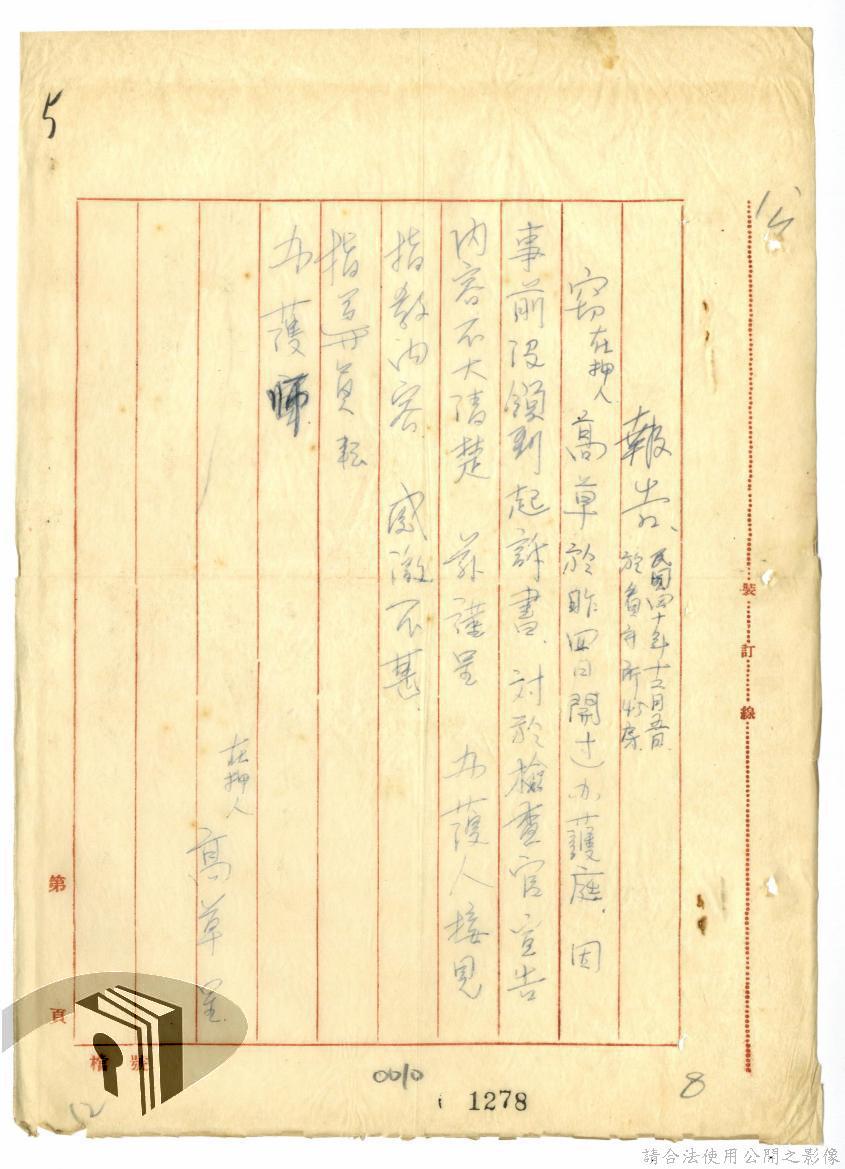 報告、民國四十年十二月五日
於看守所
竊在押人高草於昨四日開过办護庭、因
事前沒領到起訴書、对於檢查官宣告
內容不大清楚 茲謹呈 办護人接見
指教內容 感激不甚、
指導員転
办護師
在押人 高草 呈
5
公
裝訂線
第 頁
檔號
0010
1278
8
12
請合法使用公開之影像